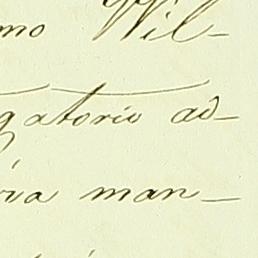 mo Wil-
gatorio ad-
ria man-